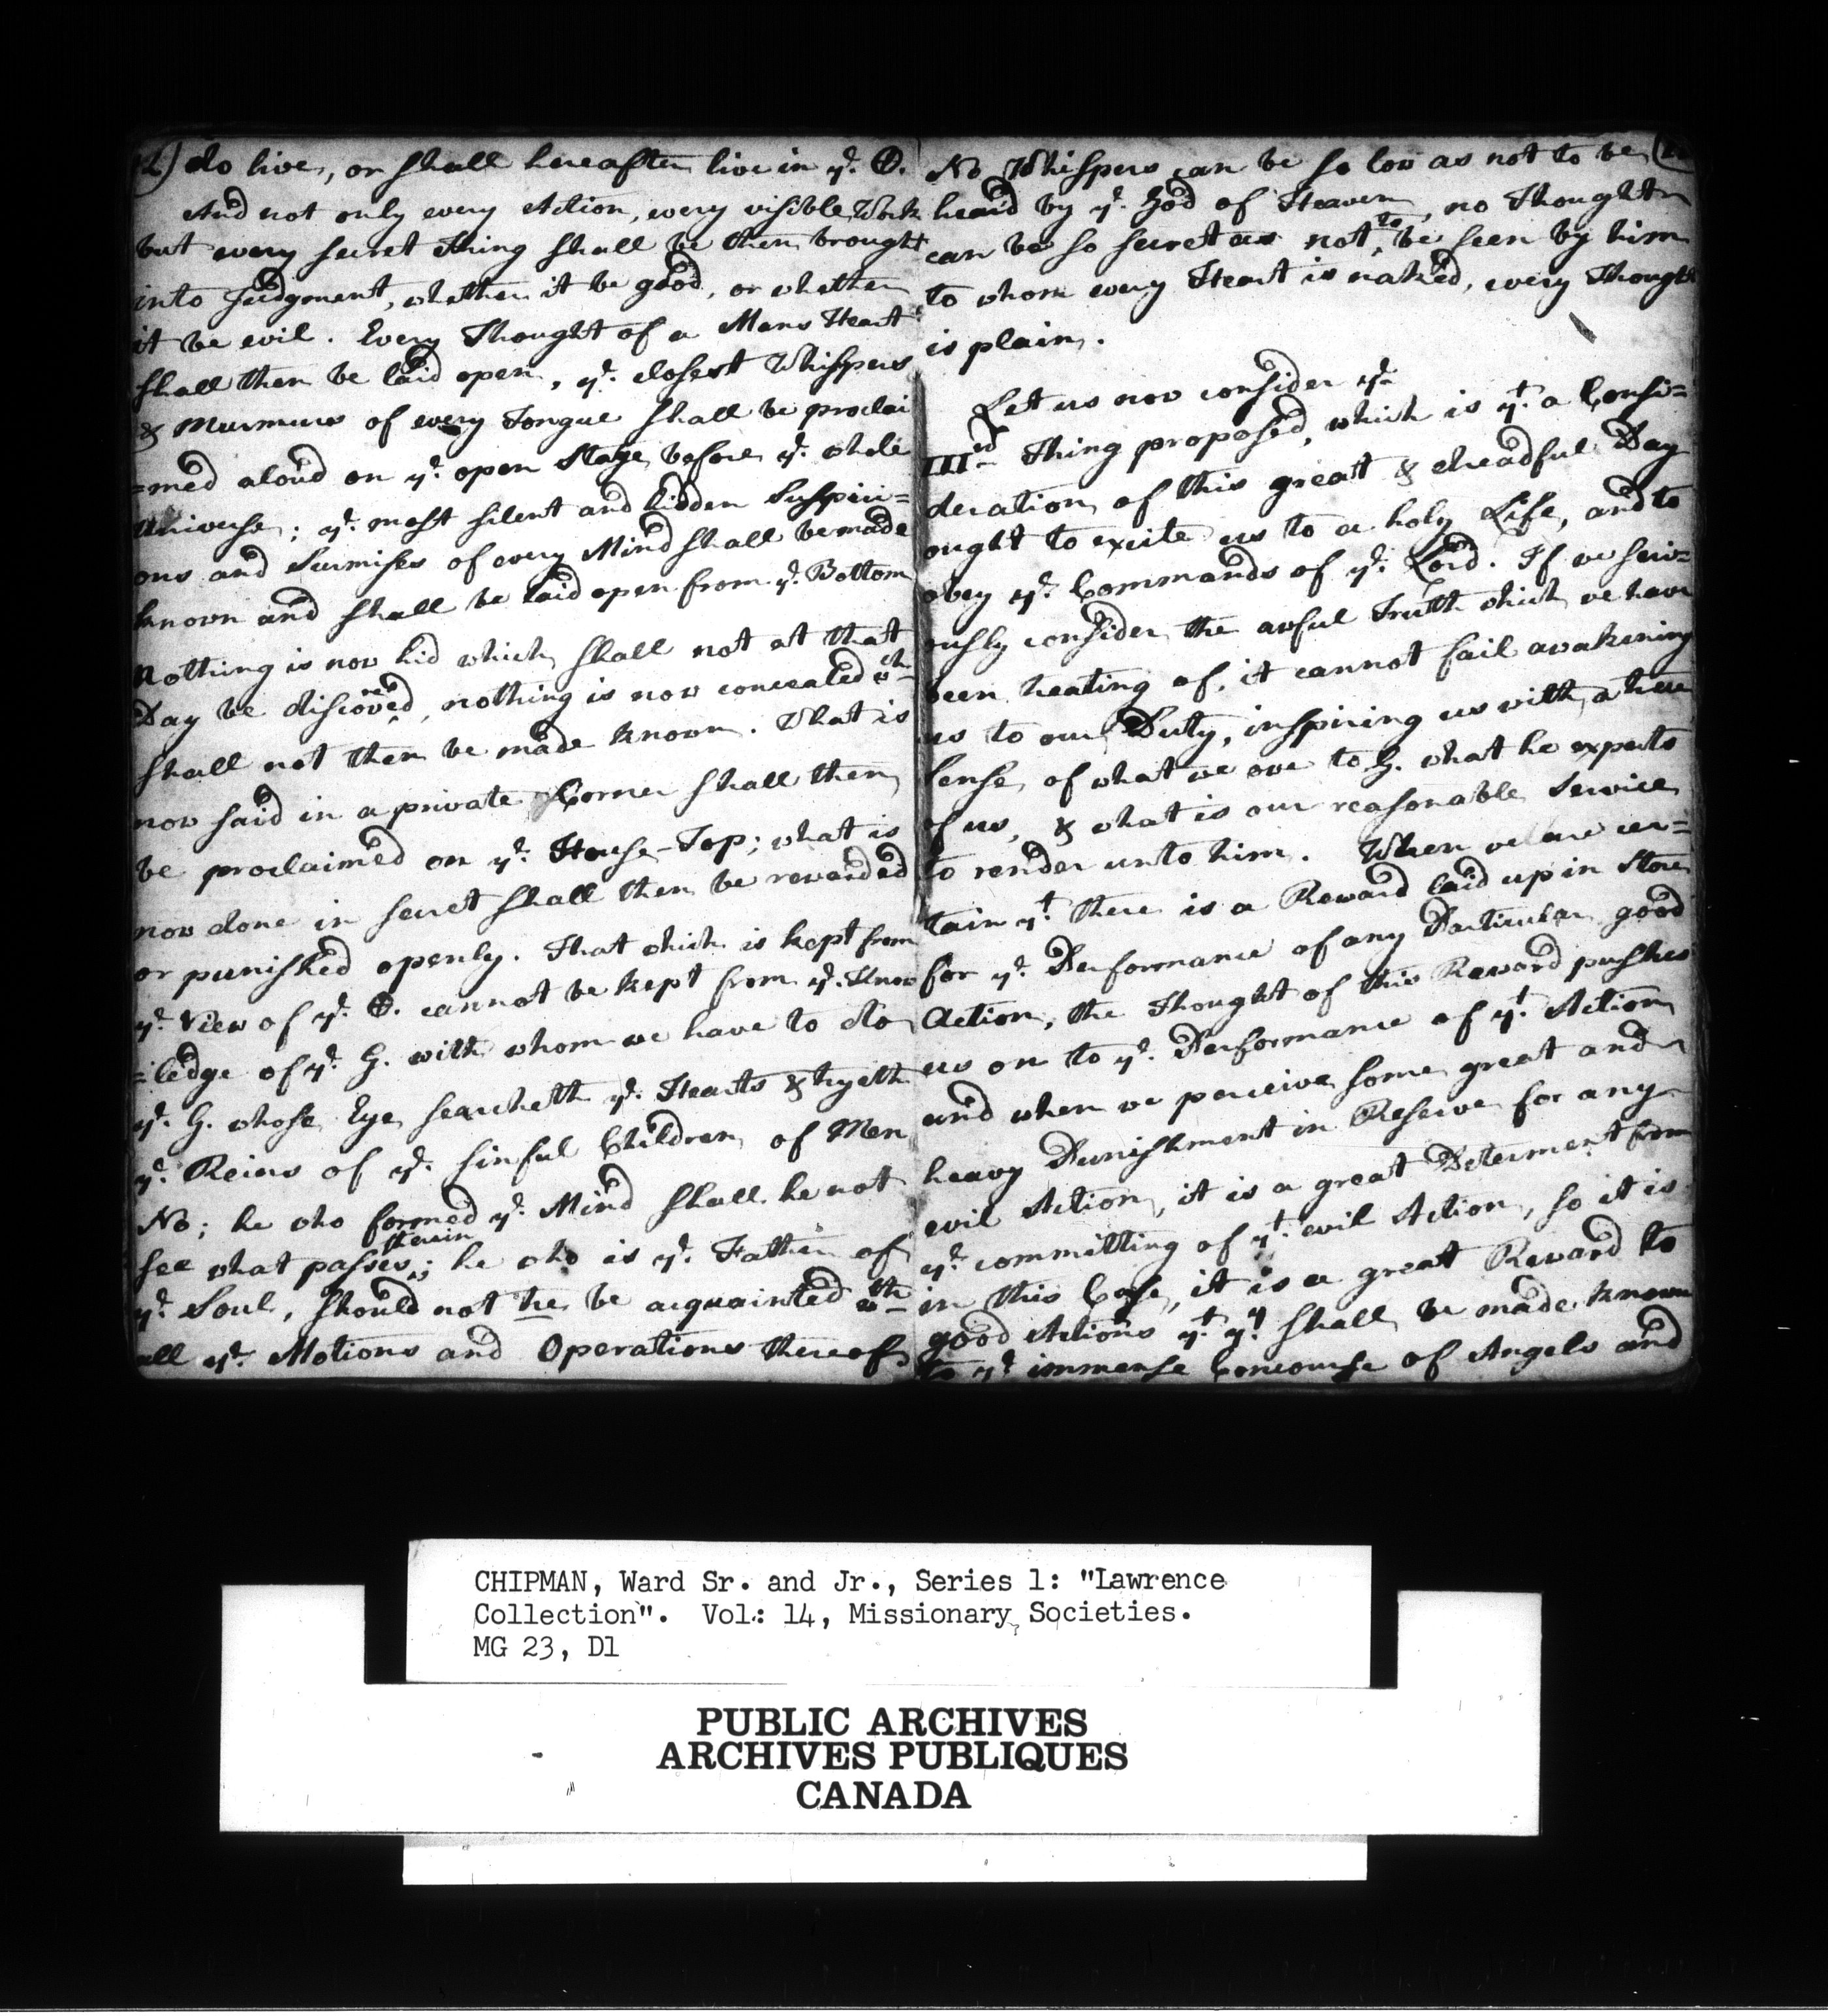 12) do live, or shall hereafter live in yͤ. ⊕.
And not only every Action, every visible Work
but every secret Thing shall be then brought
into Judgment, whether it be good, or whether
it be evil. Every Thought of a Mans Heart
shall then be laid open, yͤ. closest Whispers
& Murmurs of every Tongue shall be proclai
=med aloud on yͤ. open Stage before yͤ. whole
Universe; yͤ. most silent and hidden Suspici=
ons and Surmises of every Mind shall be made
known and shall be laid open from yͤ. Bottom
Nothing is now hid which shall not at that
Day be discovered, nothing is now concealed wch.
shall not then be made known. What is
now said in a private Corner shall then
be proclaimed on yͤ. House-Top; what is
now done in secret shall then be rewarded
or punished openly. That which is kept from
yͤ. View of yͤ. ⊕. cannot be kept from yͤ. Know
=ledge of yͤ. G. with whom we have to do
yͤ. G. whose Eye searcheth yͤ. Hearts & tryeth
yͤ. Reins of yͤ. sinful Children of Men
No; he who formed yͤ. Mind shall he not
see what passes therein; he who is yͤ. Father of
yͤ. Soul, should not he be acquainted wth
all yͤ. Motions and Operations thereof
No Whispers can be so low as not to be
heard by yͤ. God of Heaven, no Thought
can be so secret as not to be seen by him
to whom every Heart is naked, every Thought
is plain.
Let us now consider yͤ
IIIrd Thing proposed, which is yͭ. a Consi=
deration of this great & dreadful Day
ought to excite us to a holy Life, and to
obey yͤ. Commands of yͤ. Lord. If we seri=
ously consider the awful Truth which we have
been treating of, it cannot fail awakening
us to our Duty, inspiring us with a true
Sense of what we owe to G. what he expects
of us, & what is our reasonable Service
to render unto him. When we are cer=
tain yͭ. there is a Reward laid up in Store
for yͤ. Performance of any Particular good
Action, the Thought of this Reward pushes
us on to yͤ. Performance of yͭ. Action
and when we perceive some great and
heavy Punishment in Reserve for any
evil Action, it is a great Determent from
yͤ. committing of yͭ. evil Action, so it is
in this Case, it is a great Reward to
good Actions yͭ. yͤy shall be made known
to yͤ. immense Concourse of Angels and
CHIPMAN, Ward Sr. and Jr., Series 1: "Lawrence
Collection". Vol.: 14, Missionary Societies.
MG 23, D1
PUBLIC ARCHIVES
ARCHIVES PUBLIQUES
CANADA